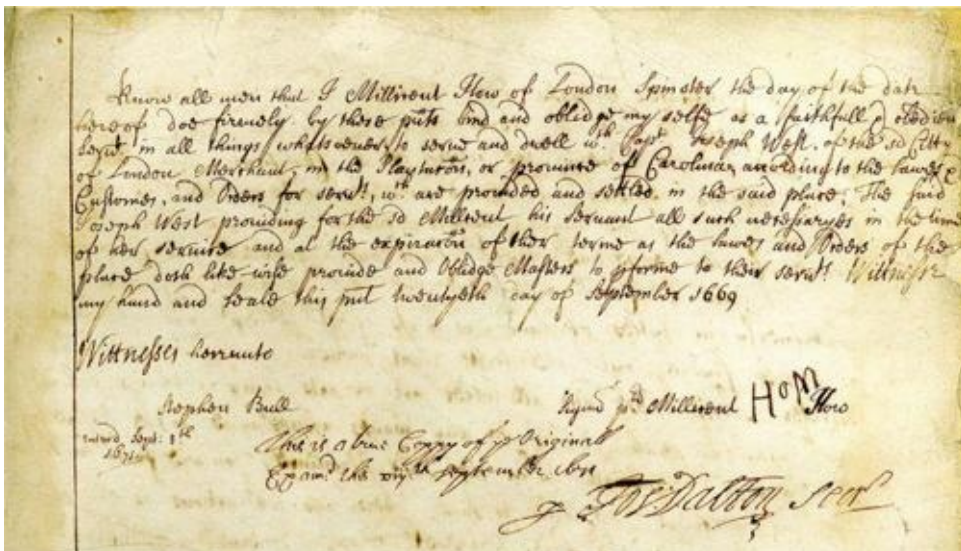 Know all men that I Millicent How of London Spinster the day of the date
hereof doe firmely by these pñts bind and oblidge my selfe as a faithfull & obedien
Servt. in all things whatsoever, to serve and dwell wth. Capt. Joseph West, of the sd Citty
of London Merchant, in the Plantacõn, or province of Carolina, according to the lawes &
Customes, and Orders for servts. wch are provided and setled in the said place, The said
Joseph West providing for the sd Millicent his servant all such necessaryes in the time
of her service and at the expiracõn of ther terme as the lawes and Orders of the
place doth like wise provide and Oblidge Masters to pforme to their servts. Wittnesse
my hand and seale this pñt twentyeth day of September 1669
Wittnesses hereunto
Stephen Bull
Millicent HOM How
Sept. 1671
This is a true Coppy of ye Originall
September 1671
Jos: Dalton Secr